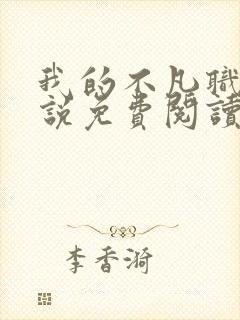 我的不凡職
說免費閱讀
李香漪